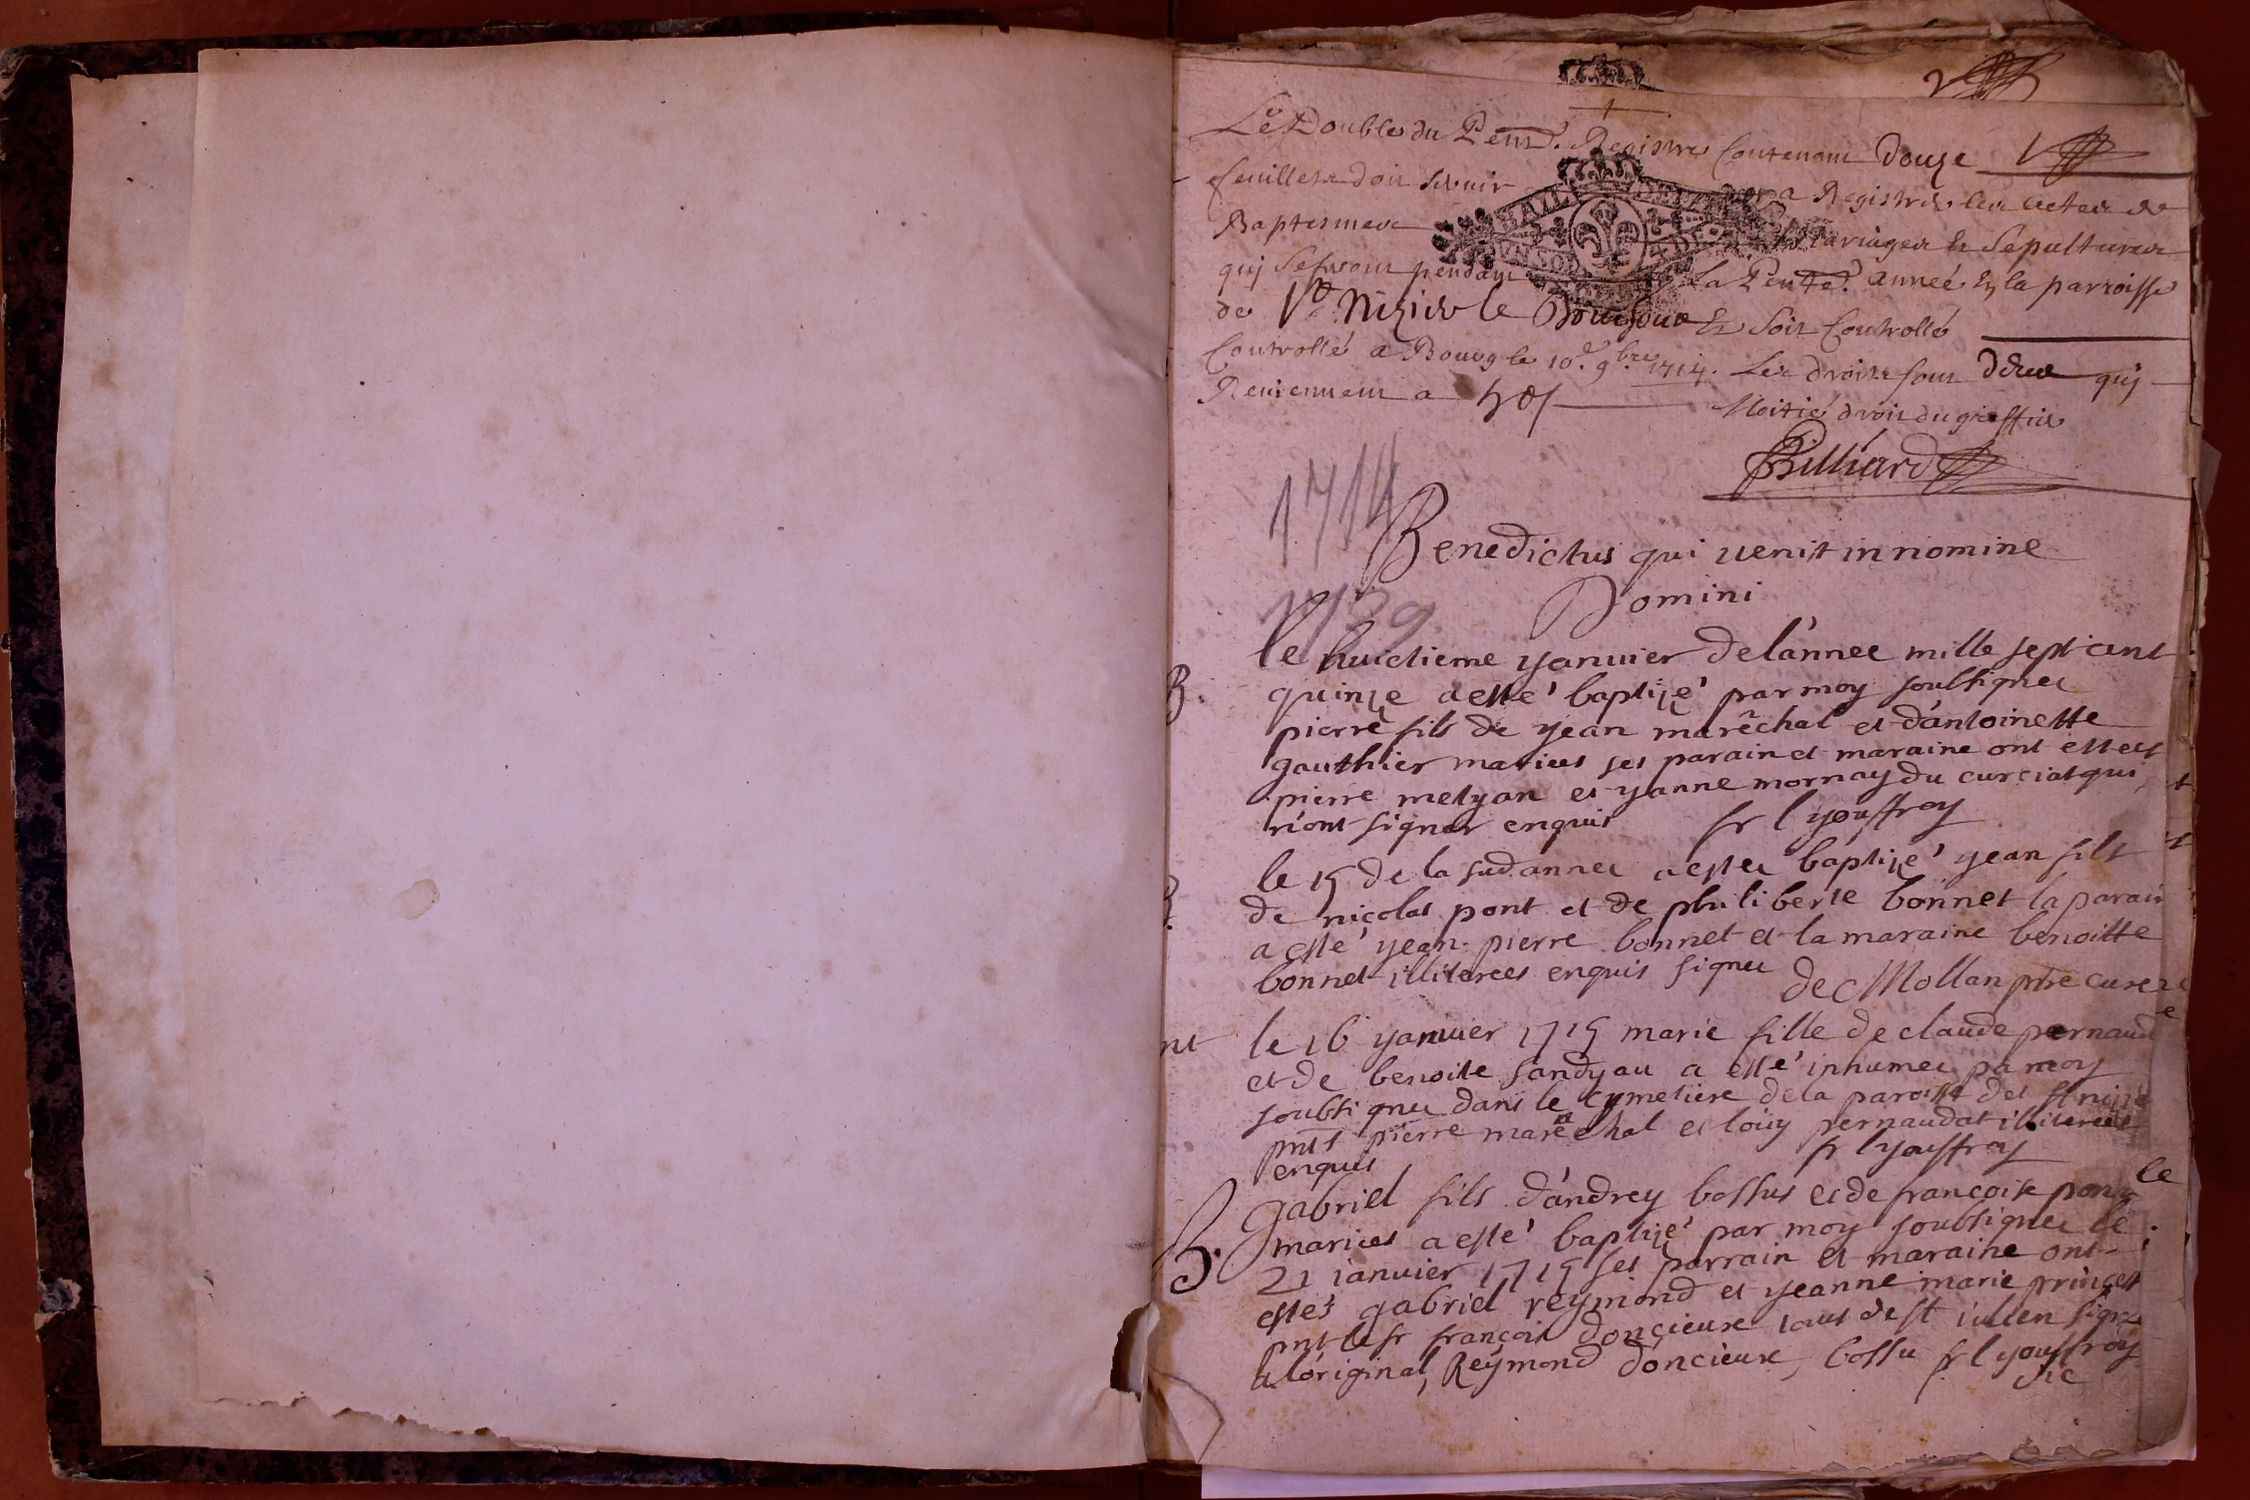 Le Double du Pent. Registre Contenant Douze
feuillets doit servir a Registrer les actes de
Baptesmes Mariages et Sepultures
qui se feront pendant la Pente. année En la parroisse
de St. Nizier le Bouchoux Et Soit Controllé
Controllé a Bourg le 10e. 9bre. 1714. Les droits sont deus qui
Reviennent a
Moitié droit du greffier
Billiard
1714
Benedictus qui uenit in nomine
Domini
B.
le huictieme yanuier de l'annee mille sept cent
quinze a esté baptizé par moy soubsignee
pierre fils de yean maréchal et d'antoinette
gauthier maries ses parain et maraine ont estees
pierre et yanne mornay du curciat qui
n'ont signer enquis fr l youffroy
le 15 de la sud. annee a estee baptizé yean fils
de nicolas pont et de philiberte bonnet la parain
a esté yean pierre bonnet et la maraine benoitte
bonnet illiterees enquis signee de Mollan ptre cure
le 16 yanuier 1715 marie fille de claude pernaud
et de benoite sandyau a esté inhumee pa moy
soubsignee dans le cymetiere de la paroisse de
pnts pierre maréchal et louy pernaudat illiterees
enquis fr l youffroy
B.
gabriel fils d'andrey bossus et de françoise
maries a esté baptizé par moy soubsignee le
21 ianuier 1715 ses parrain et maraine ont
estés gabriel reymond et yeanne marie
pnt le sr françois doncieux tous de st iulien
a l'original, Reymond doncieux, bossu fr l youffroy
vic